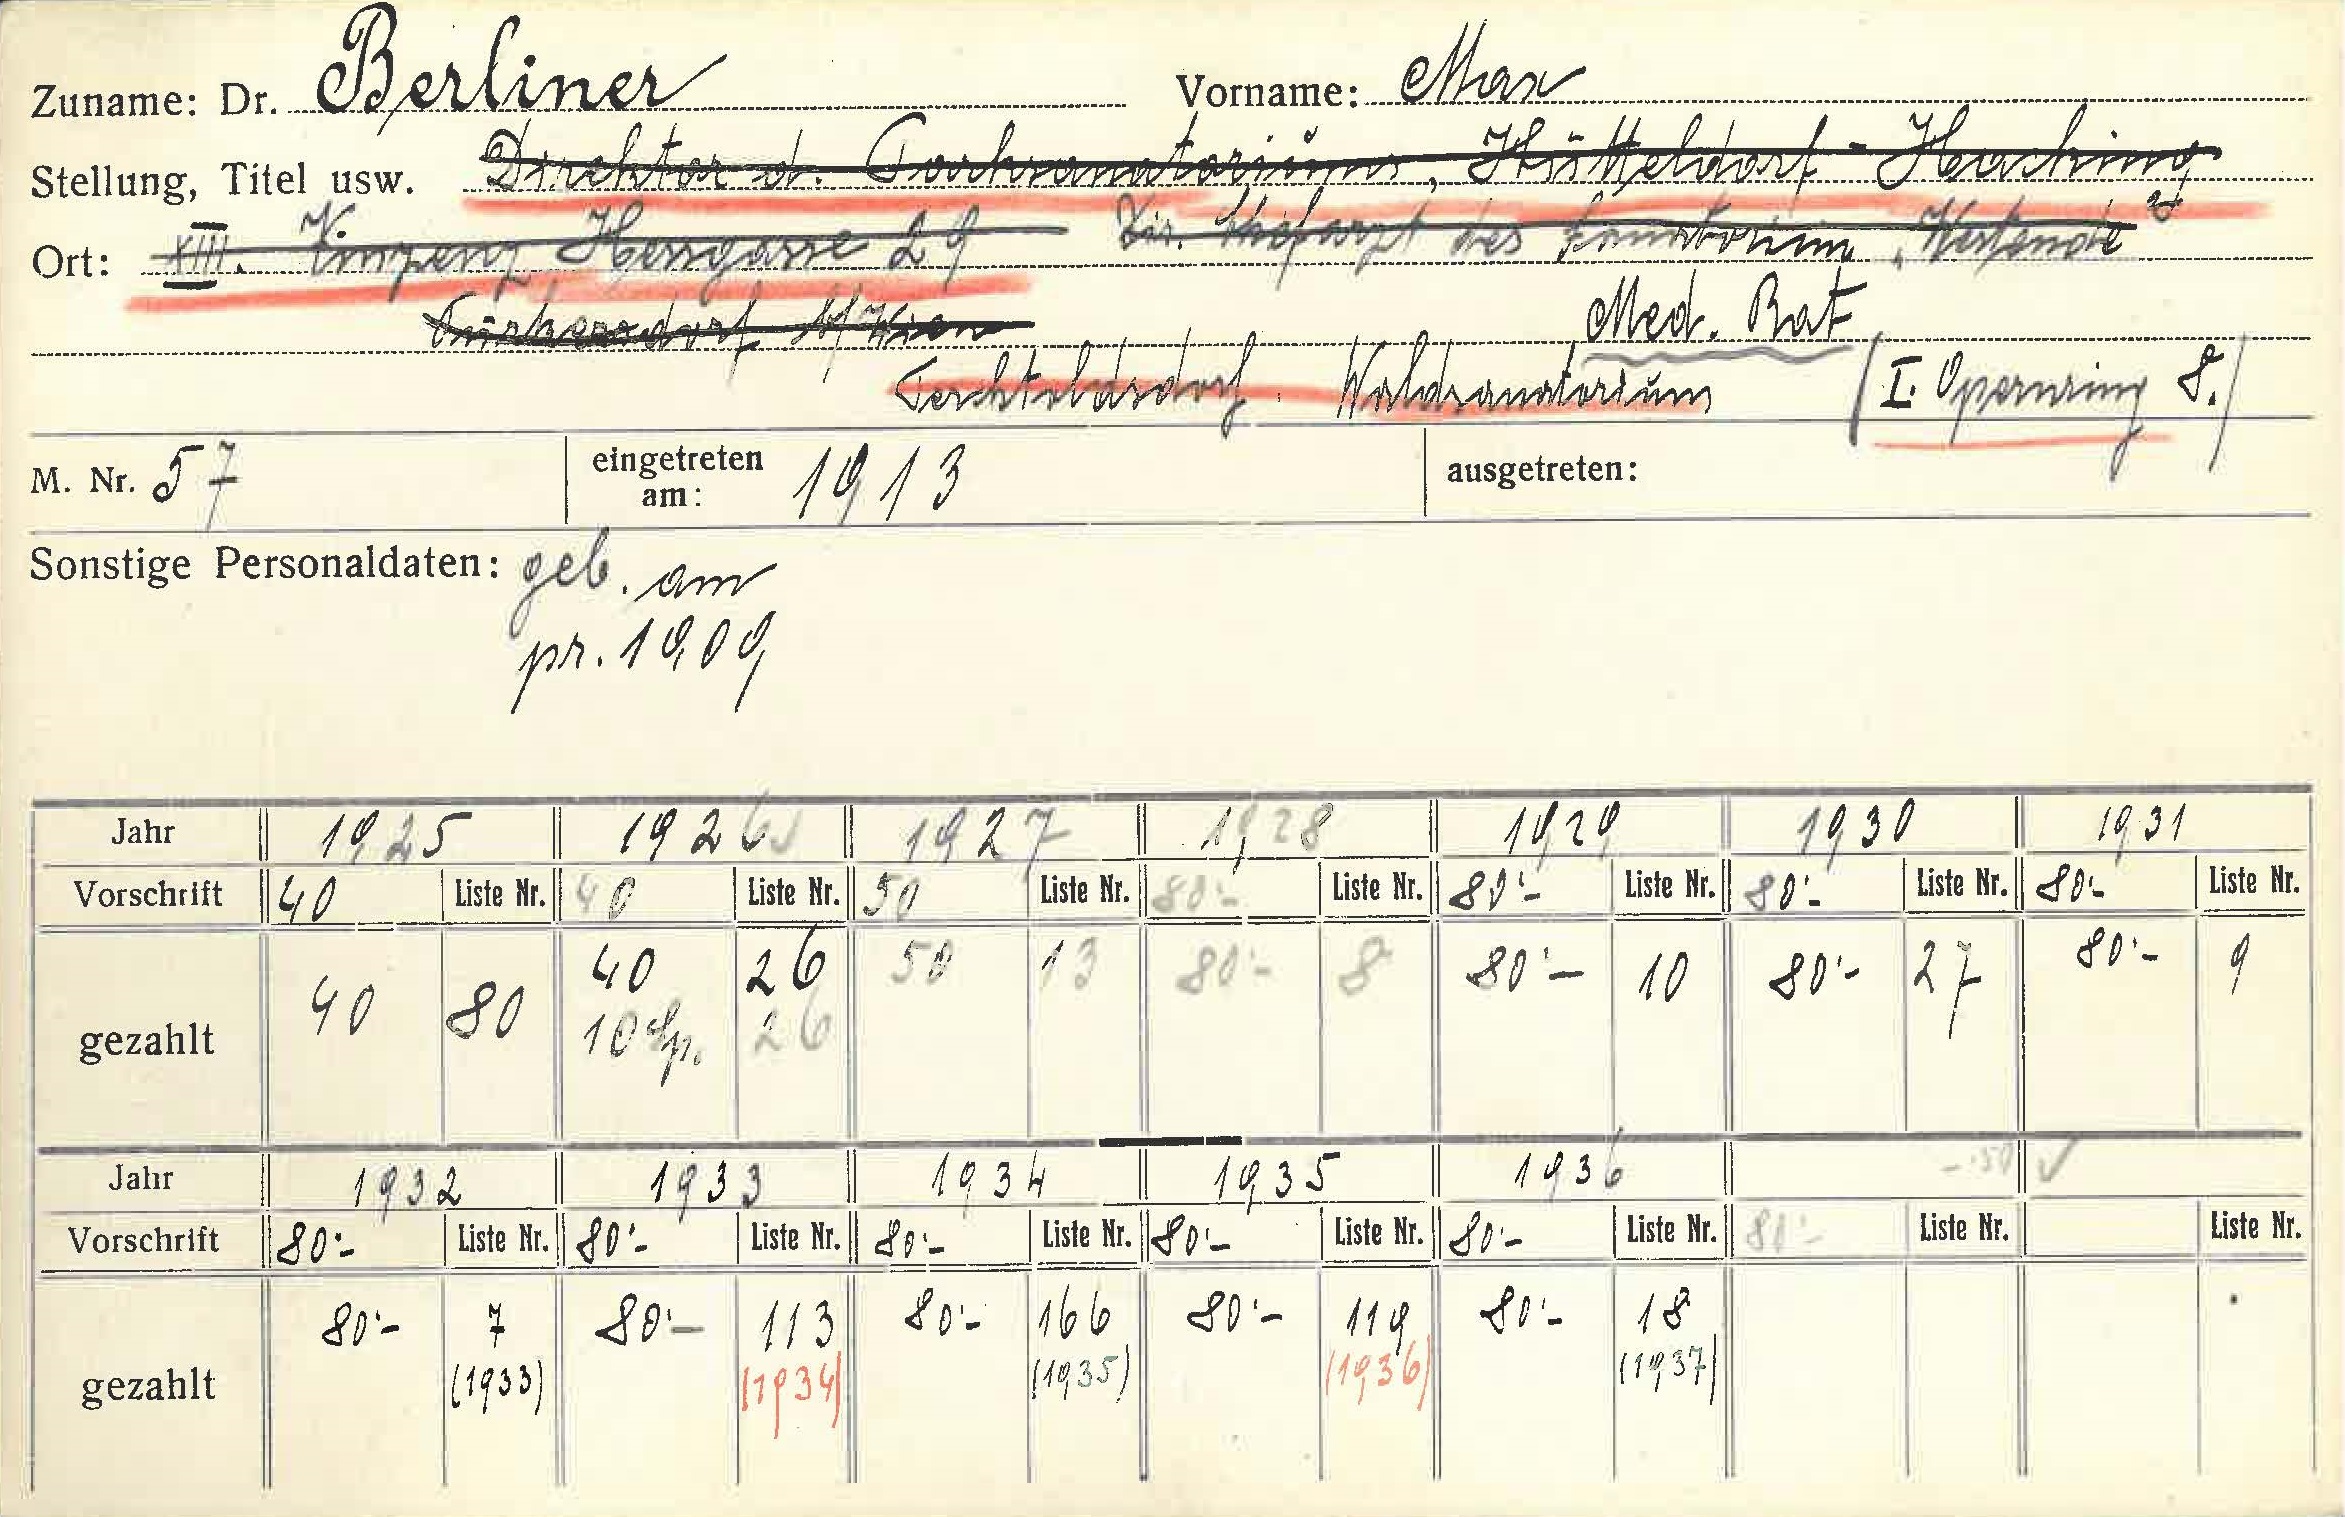 Zuname: Dr. Berliner Vorname: Max
Stellung, Titel usw. Direktor d. Parksanatoriums, Hütteldorf-Hacking
Ort: XIII. Vinzenz Hessgasse 29 Dir. Chefarzt des Sanatorium „Westende“
Purkersdorf b/Wien Med. Rat
Perchtoldsdorf. Waldsanatorium (I. Opernring 8.)
M. Nr. 57 eingetreten am: 1913 ausgetreten:
Sonstige Personaldaten: geb. am
pr. 1909
Jahr 1925 1926 1927 1928 1929 1930 1931
Vorschrift 40 Liste Nr. 40 Liste Nr. 50 Liste Nr. 80·- Liste Nr. 80·- Liste Nr. 80·- Liste Nr. 80·- Liste Nr.
gezahlt 40 80 40 26 50 13 80·- 8 80·- 10 80·- 27 80·- 9
10 Sp. 26
Jahr 1932 1933 1934 1935 1936 -·50 ✓
Vorschrift 80·- Liste Nr. 80·- Liste Nr. 80·- Liste Nr. 80·- Liste Nr. 80·- Liste Nr. 80·- Liste Nr. Liste Nr.
gezahlt 80·- 7 80·- 113 80·- 166 80·- 119 80·- 18
(1933) (1934) (1935) (1936) (1937)